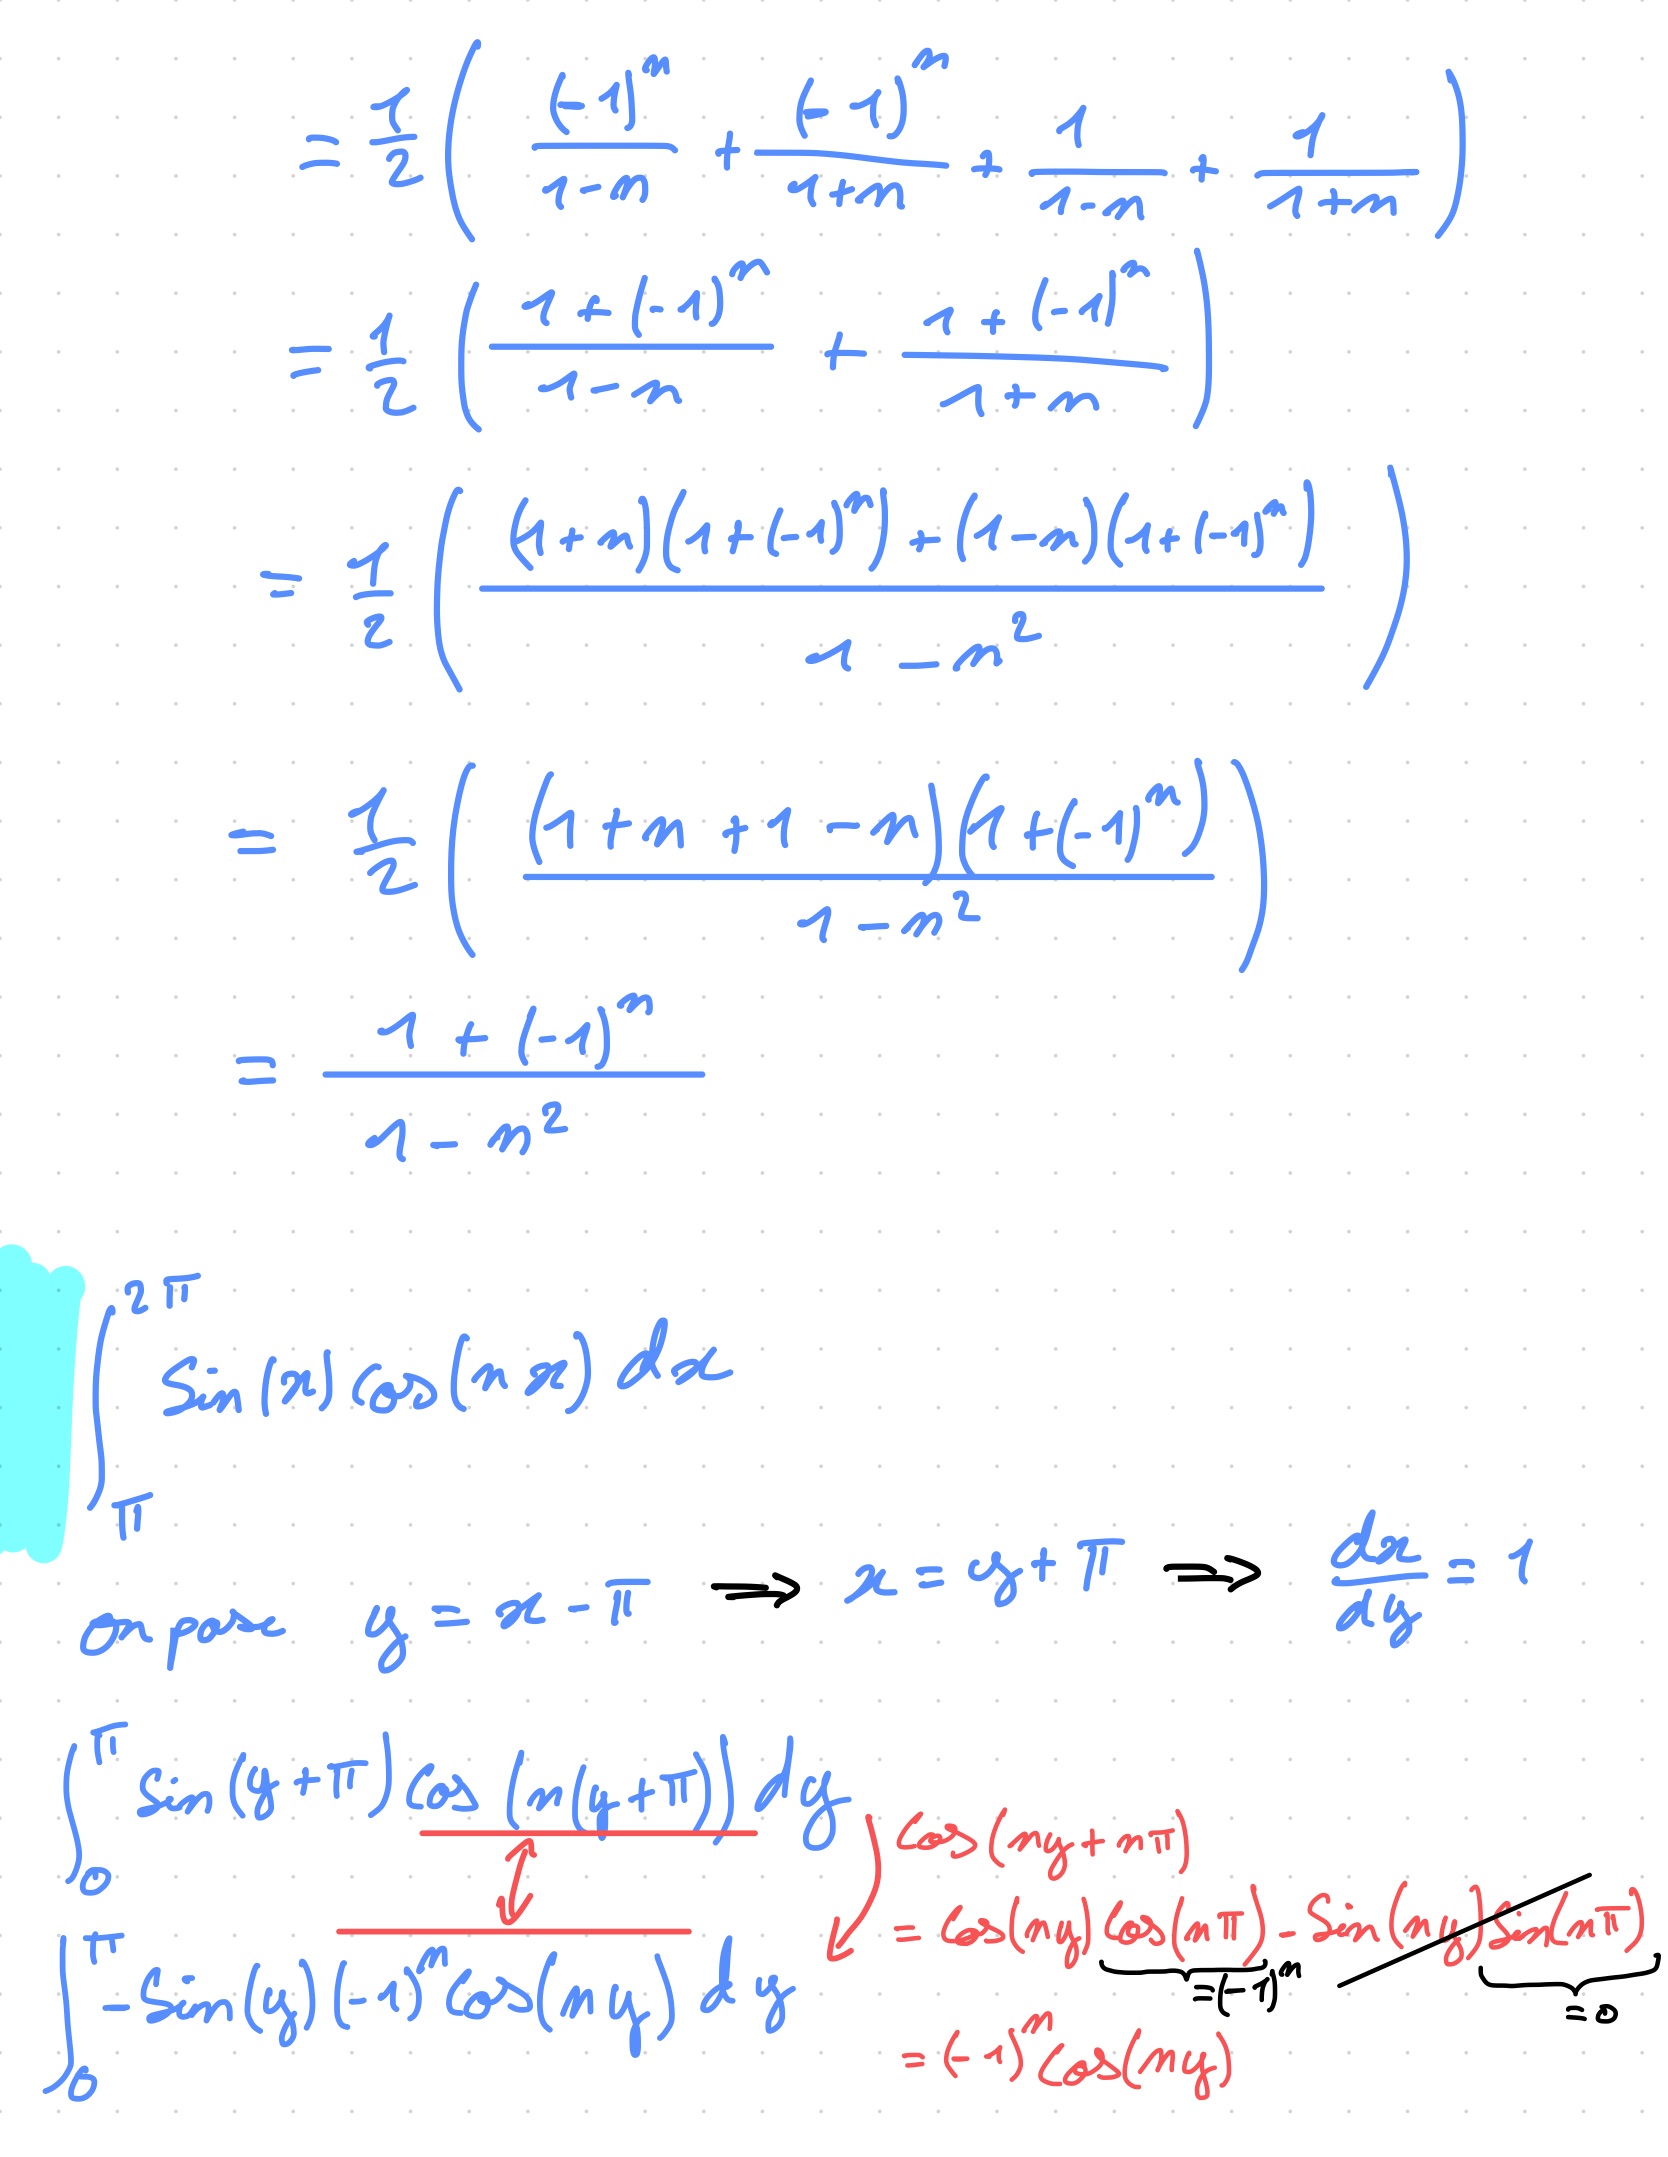 = 1/2 ( (-1)^n/(1-n) + (-1)^n/(1+n) + 1/(1-n) + 1/(1+n) )
= 1/2 ( (1+(-1)^n)/(1-n) + (1+(-1)^n)/(1+n) )
= 1/2 ( ((1+n)(1+(-1)^n) + (1-n)(1+(-1)^n))/(1-n²) )
= 1/2 ( ((1+n+1-n)(1+(-1)^n))/(1-n²) )
= (1+(-1)^n)/(1-n²)
∫_π^{2π} Sin(x) Cos(nx) dx
On pose y = x - π ⇒ x = y + π ⇒ dx/dy = 1
∫_0^π Sin(y+π) Cos(n(y+π)) dy
Cos(ny+nπ)
= Cos(ny) Cos(nπ) - Sin(ny) Sin(nπ)
=(-1)^n
=0
∫_0^π -Sin(y)(-1)^n Cos(ny) dy
= (-1)^n Cos(ny)